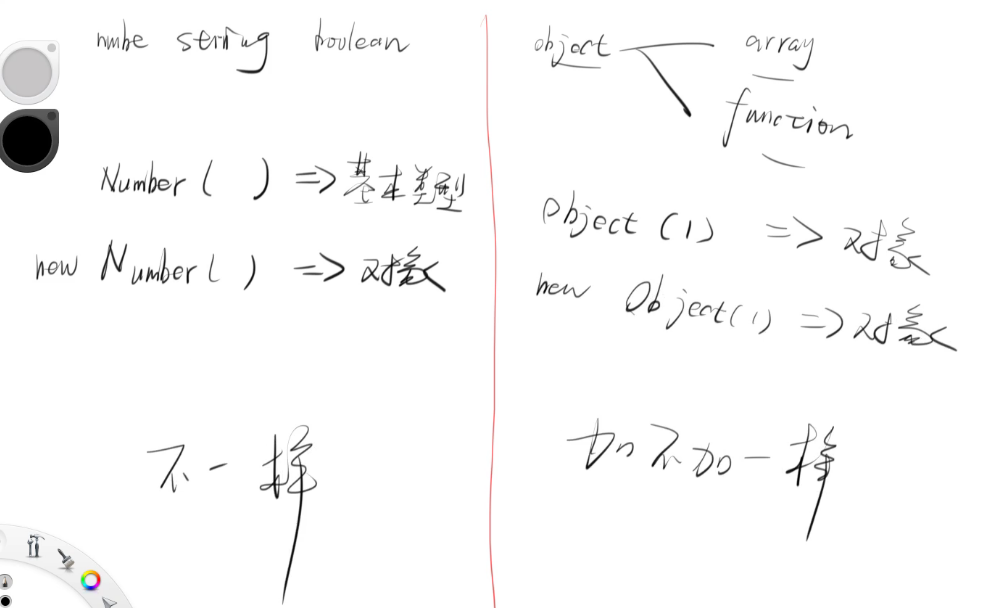 numbe string boolean
Number ( ) => 基本类型
new Number ( ) => 对象
不一样
object array
function
Object (1) => 对象
new Object (1) => 对象
加不加一样